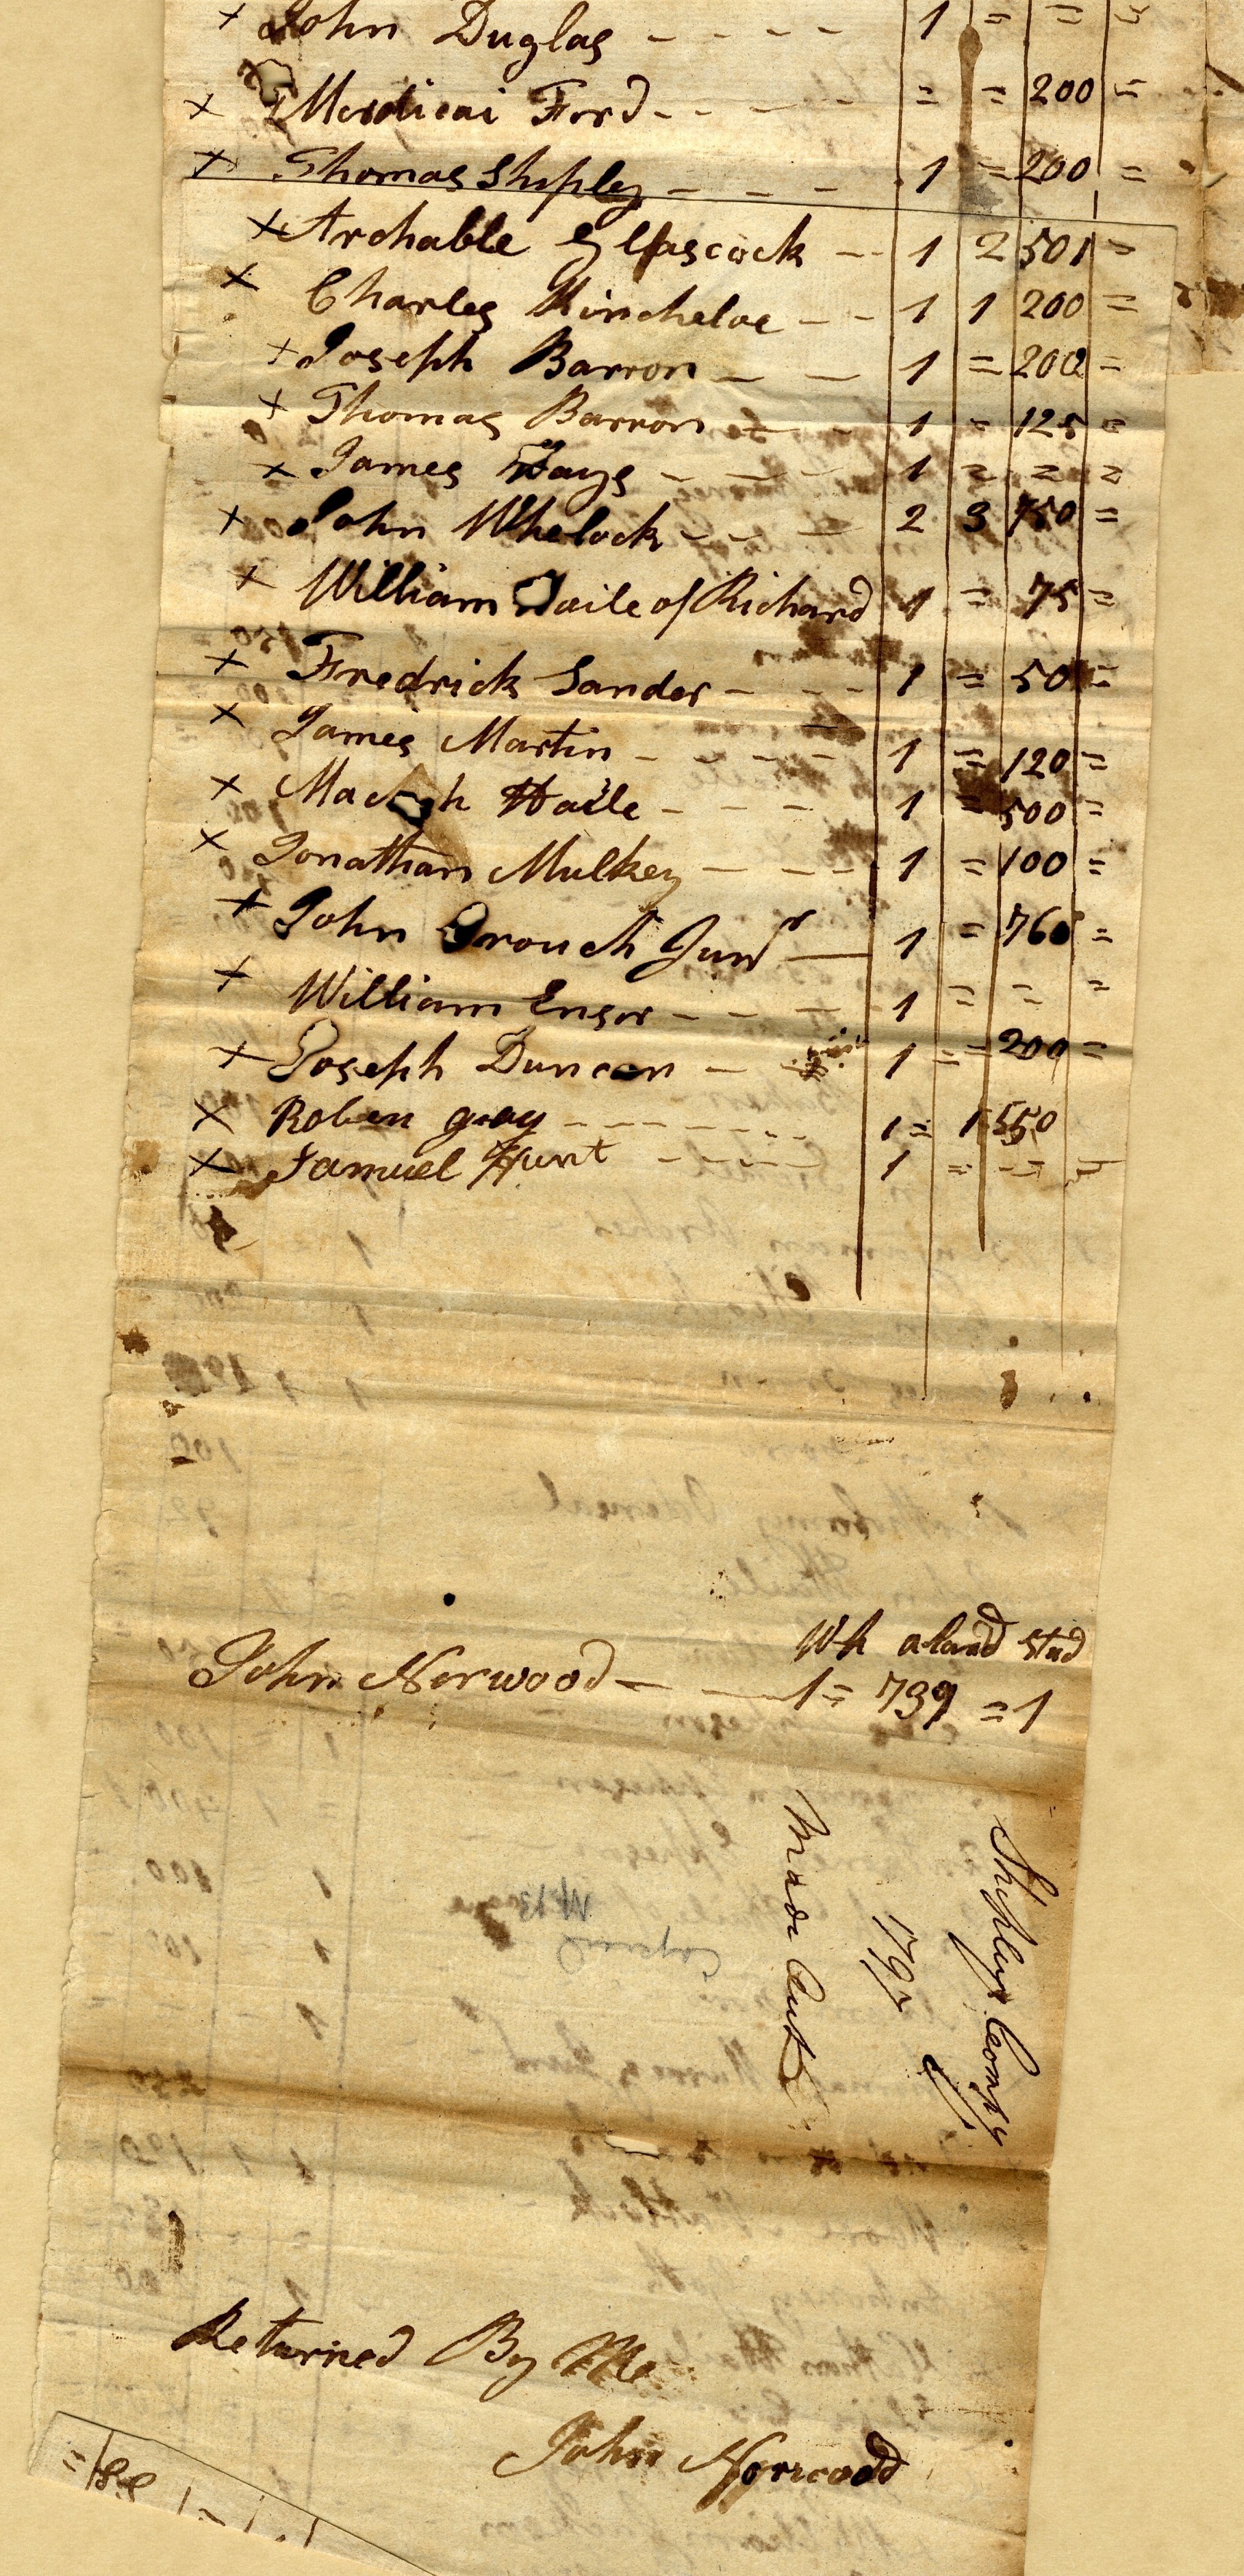 x John Duglas - - - - 1 = = =
x Merdicai Ford - - - - = = 200 =
x Thomas Shipley - - - 1 = 200 =
x Archable Glascock - - 1 2 501 =
x Charles Kincheloe - - 1 1 200 =
x Joseph Barron - - 1 = 200 =
x Thomas Barron - - 1 = 125 =
x James Hays - - - - 1 = = =
x John Whelock - - - 2 3 750 =
x William Haile of Richard 1 = 75 =
x Fredrick Sander - - - 1 = 50 =
x James Martin - - - - - 1 = 120 =
x Haile - - - 1 = 500 =
x Jonathan Mulkey - - - - 1 = 100 =
x John Crouch Junr — 1 = 760 =
x William Ensor - - - - 1 = = =
x Joseph Duncan - 1 = = 200 =
x Roben gray - - - - - - - 1 = 1 550
x Samuel Hunt - - - - 1 = = =
Wh a land stud
John Norwood - - - 1 = 739 = 1
Shipleys Compy
1797
Made Out
Returned By Me
John Norwood